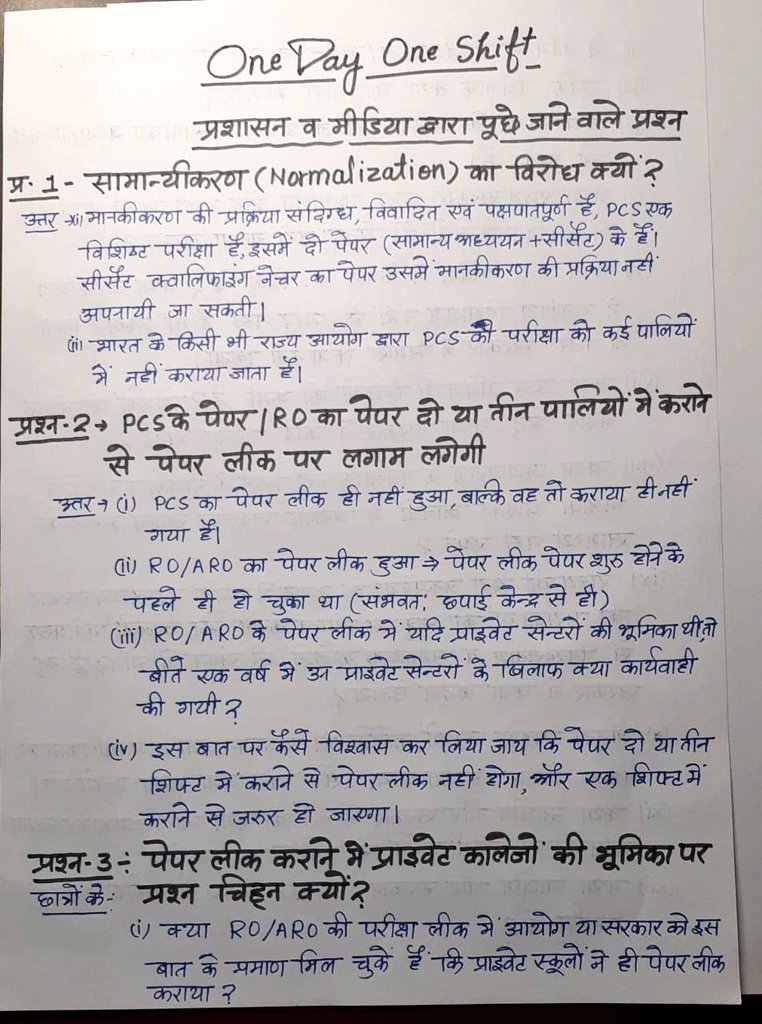 One Day One Shift
प्रशासन व मीडिया द्वारा पूछे जाने वाले प्रश्न
प्र. 1 - सामान्यीकरण (Normalization) का विरोध क्यों ?
उत्तर → (i) मानकीकरण की प्रक्रिया संदिग्ध, विवादित एवं पक्षपातपूर्ण है, PCS एक
विशिष्ट परीक्षा है, इसमें दो पेपर (सामान्य अध्ययन + सीसैट) के हैं।
सीसैट क्वालिफाइंग नेचर का पेपर उसमें मानकीकरण की प्रक्रिया नहीं
अपनायी जा सकती।
(ii) भारत के किसी भी राज्य आयोग द्वारा PCS की परीक्षा को कई पालियों
में नहीं कराया जाता है।
प्रश्न-2 → PCS के पेपर / RO का पेपर दो या तीन पालियों में कराने
से पेपर लीक पर लगाम लगेगी
उत्तर → (i) PCS का पेपर लीक ही नहीं हुआ, बल्कि वह तो कराया ही नहीं
गया है।
(ii) RO/ARO का पेपर लीक हुआ → पेपर लीक पेपर शुरु होने के
पहले ही हो चुका था (संभवत: छपाई केन्द्र से ही)
(iii) RO/ARO के पेपर लीक में यदि प्राइवेट सेन्टरों की भूमिका थी, तो
बीते एक वर्ष में उन प्राइवेट सेन्टरों के खिलाफ क्या कार्यवाही
की गयी ?
(iv) इस बात पर कैसे विश्वास कर लिया जाय कि पेपर दो या तीन
शिफ्ट में कराने से पेपर लीक नहीं होगा, और एक शिफ्ट में
कराने से जरुर हो जाएगा।
प्रश्न-3 ÷ पेपर लीक कराने में प्राइवेट कालेजों की भूमिका पर
छात्रों के:- प्रश्न चिह्न क्यों ?
(i) क्या RO/ARO की परीक्षा लीक में आयोग या सरकार को इस
बात के प्रमाण मिल चुकें हैं कि प्राइवेट स्कूलों ने ही पेपर लीक
कराया ?